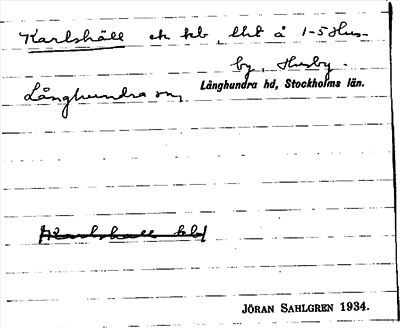 Karlshäll ek kb, lht å 1-5 Hus-
by, Husby.
Långhundra sn,
Långhundra hd, Stockholms län.
Karlshäll kb/
JÖRAN SAHLGREN 1934.